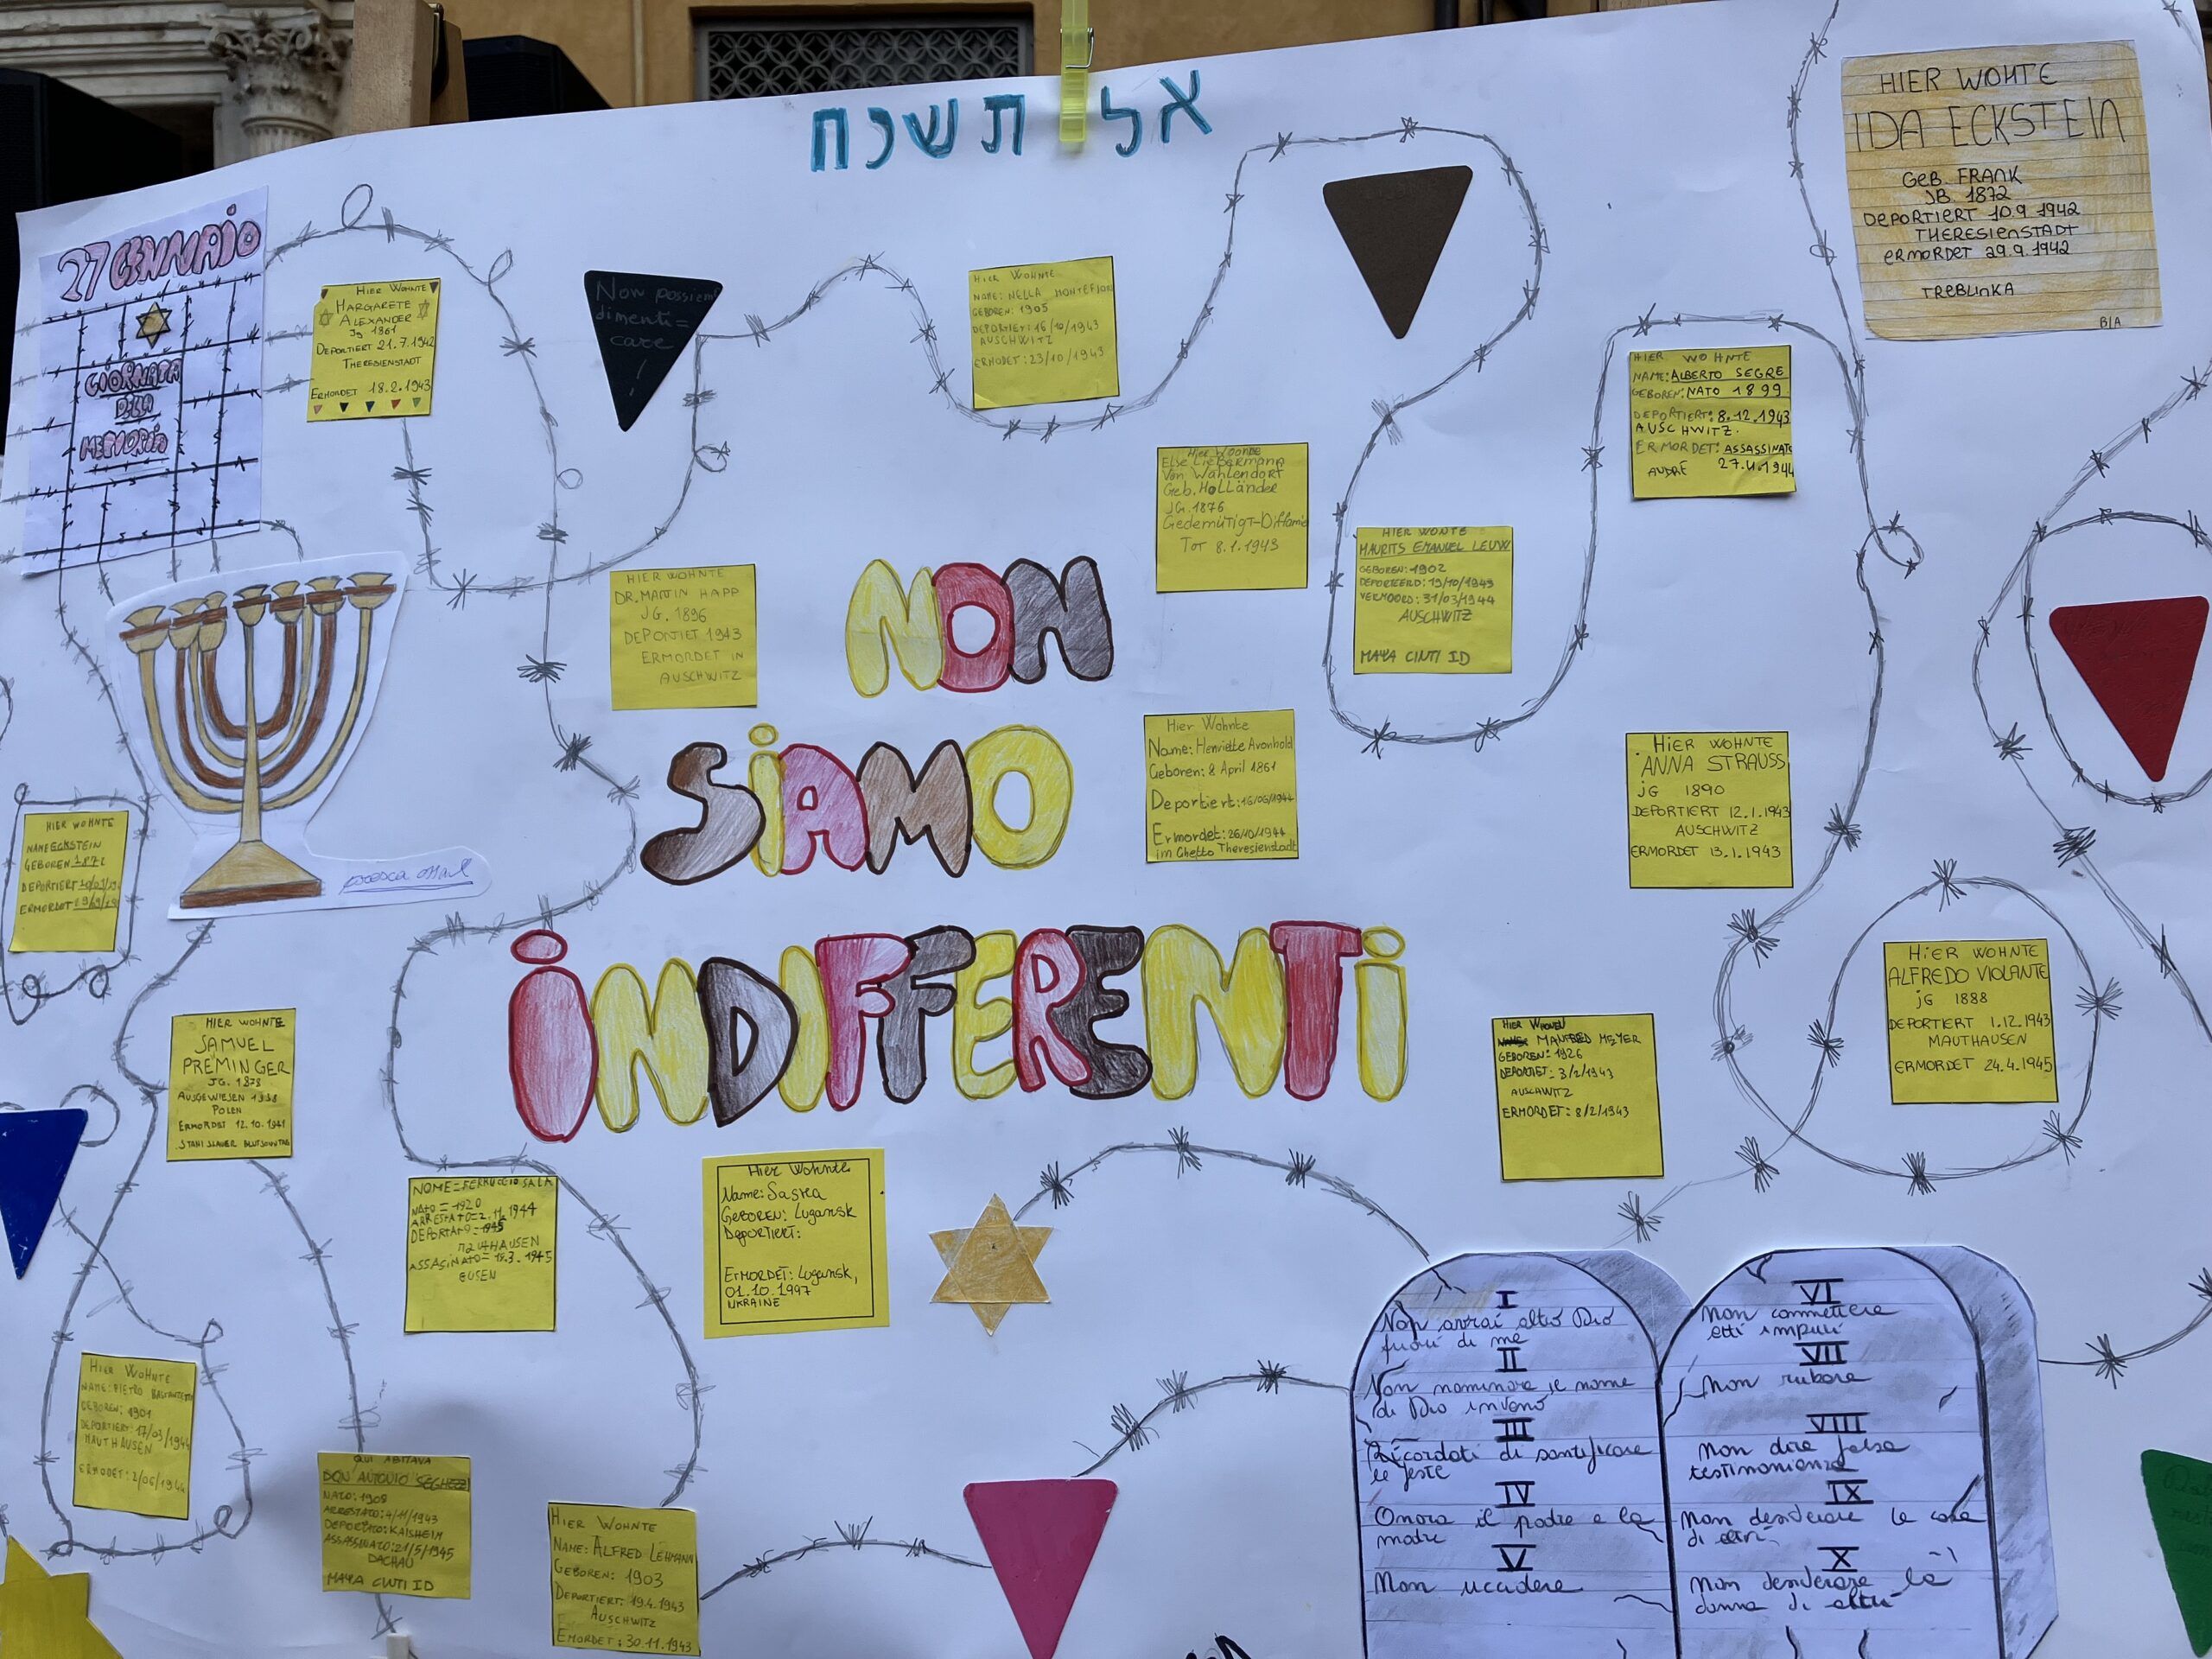 אל תשכח
27 GENNAIO
GIORNATA
DELLA
MEMORIA
HIER WOHNTE
MARGARETE
ALEXANDER
Jg 1861
DEPORTIERT 21.7.1942
THERESIENSTADT
ERMORDET 18.2.1943
Non possiam
dimenti=
care
!
HIER WOHNTE
NAME: NELLA MONTEFIOR
GEBOREN: 1905
DEPORTIERT: 16/10/1943
AUSCHWITZ
ERMODET: 23/10/1943
HIER WOHTE
IDA ECKSTEIN
GEB. FRANK
JB 1872
DEPORTIERT 10.9 1942
THERESIENSTADT
ERMORDET 29.9.1942
TREBLINKA
BIA
HIER WOHNTE
NAME: ALBERTO SEGRE
GEBOREN: NATO 1899
DEPORTIERT: 8.12.1943
AUSCHWITZ.
ERMORDET: ASSASSINATO
27.4.1944
HIER WOONDE
Else Liebermann
Von Wahlendort
Geb. Holländer
JG. 1876
Gedemütigt-Diffamie
Tot 8.1.1943
HIER WONTE
MAURITS EMANUEL LEUW
GEBOREN: 1902
DEPORTEERD: 19/10/1943
VERMOORD: 31/03/1944
AUSCHWITZ
MAYA CINTI ID
HIER WOHNTE
DR. MARTIN HAPP
JG. 1896
DEPORTIET 1943
ERMORDET IN
AUSCHWITZ
NON
SIAMO
INDIFFERENTI
Hier Wohnte
Name: Henriette Aronhold
Geboren: 8 April 1861
Deportiert: 16/06/1944
Ermordet: 26/10/1944
im Ghetto Theresienstadt
HIER WOHNTE
ANNA STRAUSS
jG 1890
DEPORTIERT 12.1.1943
AUSCHWITZ
ERMORDET 13.1.1943
HIER WOHNTE
NAME ECKSTEIN
GEBOREN 1872
DEPORTIERT
ERMORDET
HIER WOHNTE
ALFREDO VIOLANTE
jG 1888
DEPORTIERT 1.12.1943
MAUTHAUSEN
ERMORDET 24.4.1945
HIER WOHNTE
SAMUEL
PREMINGER
JG. 1873
AUSGEWIESEN 1938
POLEN
ERMORDET 12.10.1941
STANISLAUER BLUTSONNTAG
MANFRED MEYER
GEBOREN: 1926
DEPORTIET: 3/2/1943
AUSCHWITZ
ERMORDET: 8/2/1943
NOME = FERRUCCIO SALA
NATO = 1920
ARRESTATO = 2.11.1944
DEPORTATO = 1945
MAUTHAUSEN
ASSASINATO = 18.3.1945
GUSEN
Hier Wohnte
Name: Saska
GEBOREN: Lugansk
Deportiert:
ERMORDET: Lugansk,
01.10.1997
UKRAINE
HIER WOHNTE
NAME: PIETRO
GEBOREN: 1901
DEPORTIERT: 17/03/1944
MAUTHAUSEN
ERMODET: 2/06/1944
QUI ABITAVA
DON ANTONIO SEGHEZZI
NATO: 1906
ARRESTATO: 4/11/1943
DEPORTATO: KAISHEIM
ASSASSINATO: 21/5/1945
DACHAU
MAYA CINTI ID
HIER WOHNTE
NAME: ALFRED LEHMANN
GEBOREN: 1903
DEPORTIERT: 19.4.1943
AUSCHWITZ
EMORDET: 30.11.1943
I
Non avrai altro Dio
fuori di me
II
Non nominare il nome
di Dio invano
III
Ricordati di santificare
le feste
IV
Onora il padre e la
madre
V
Non uccidere
VI
Non commettere
atti impuri
VII
Non rubare
VIII
Non dire falsa
testimonianza
IX
Non desiderare la cosa
di altri
X
Non desiderare la
donna di altri